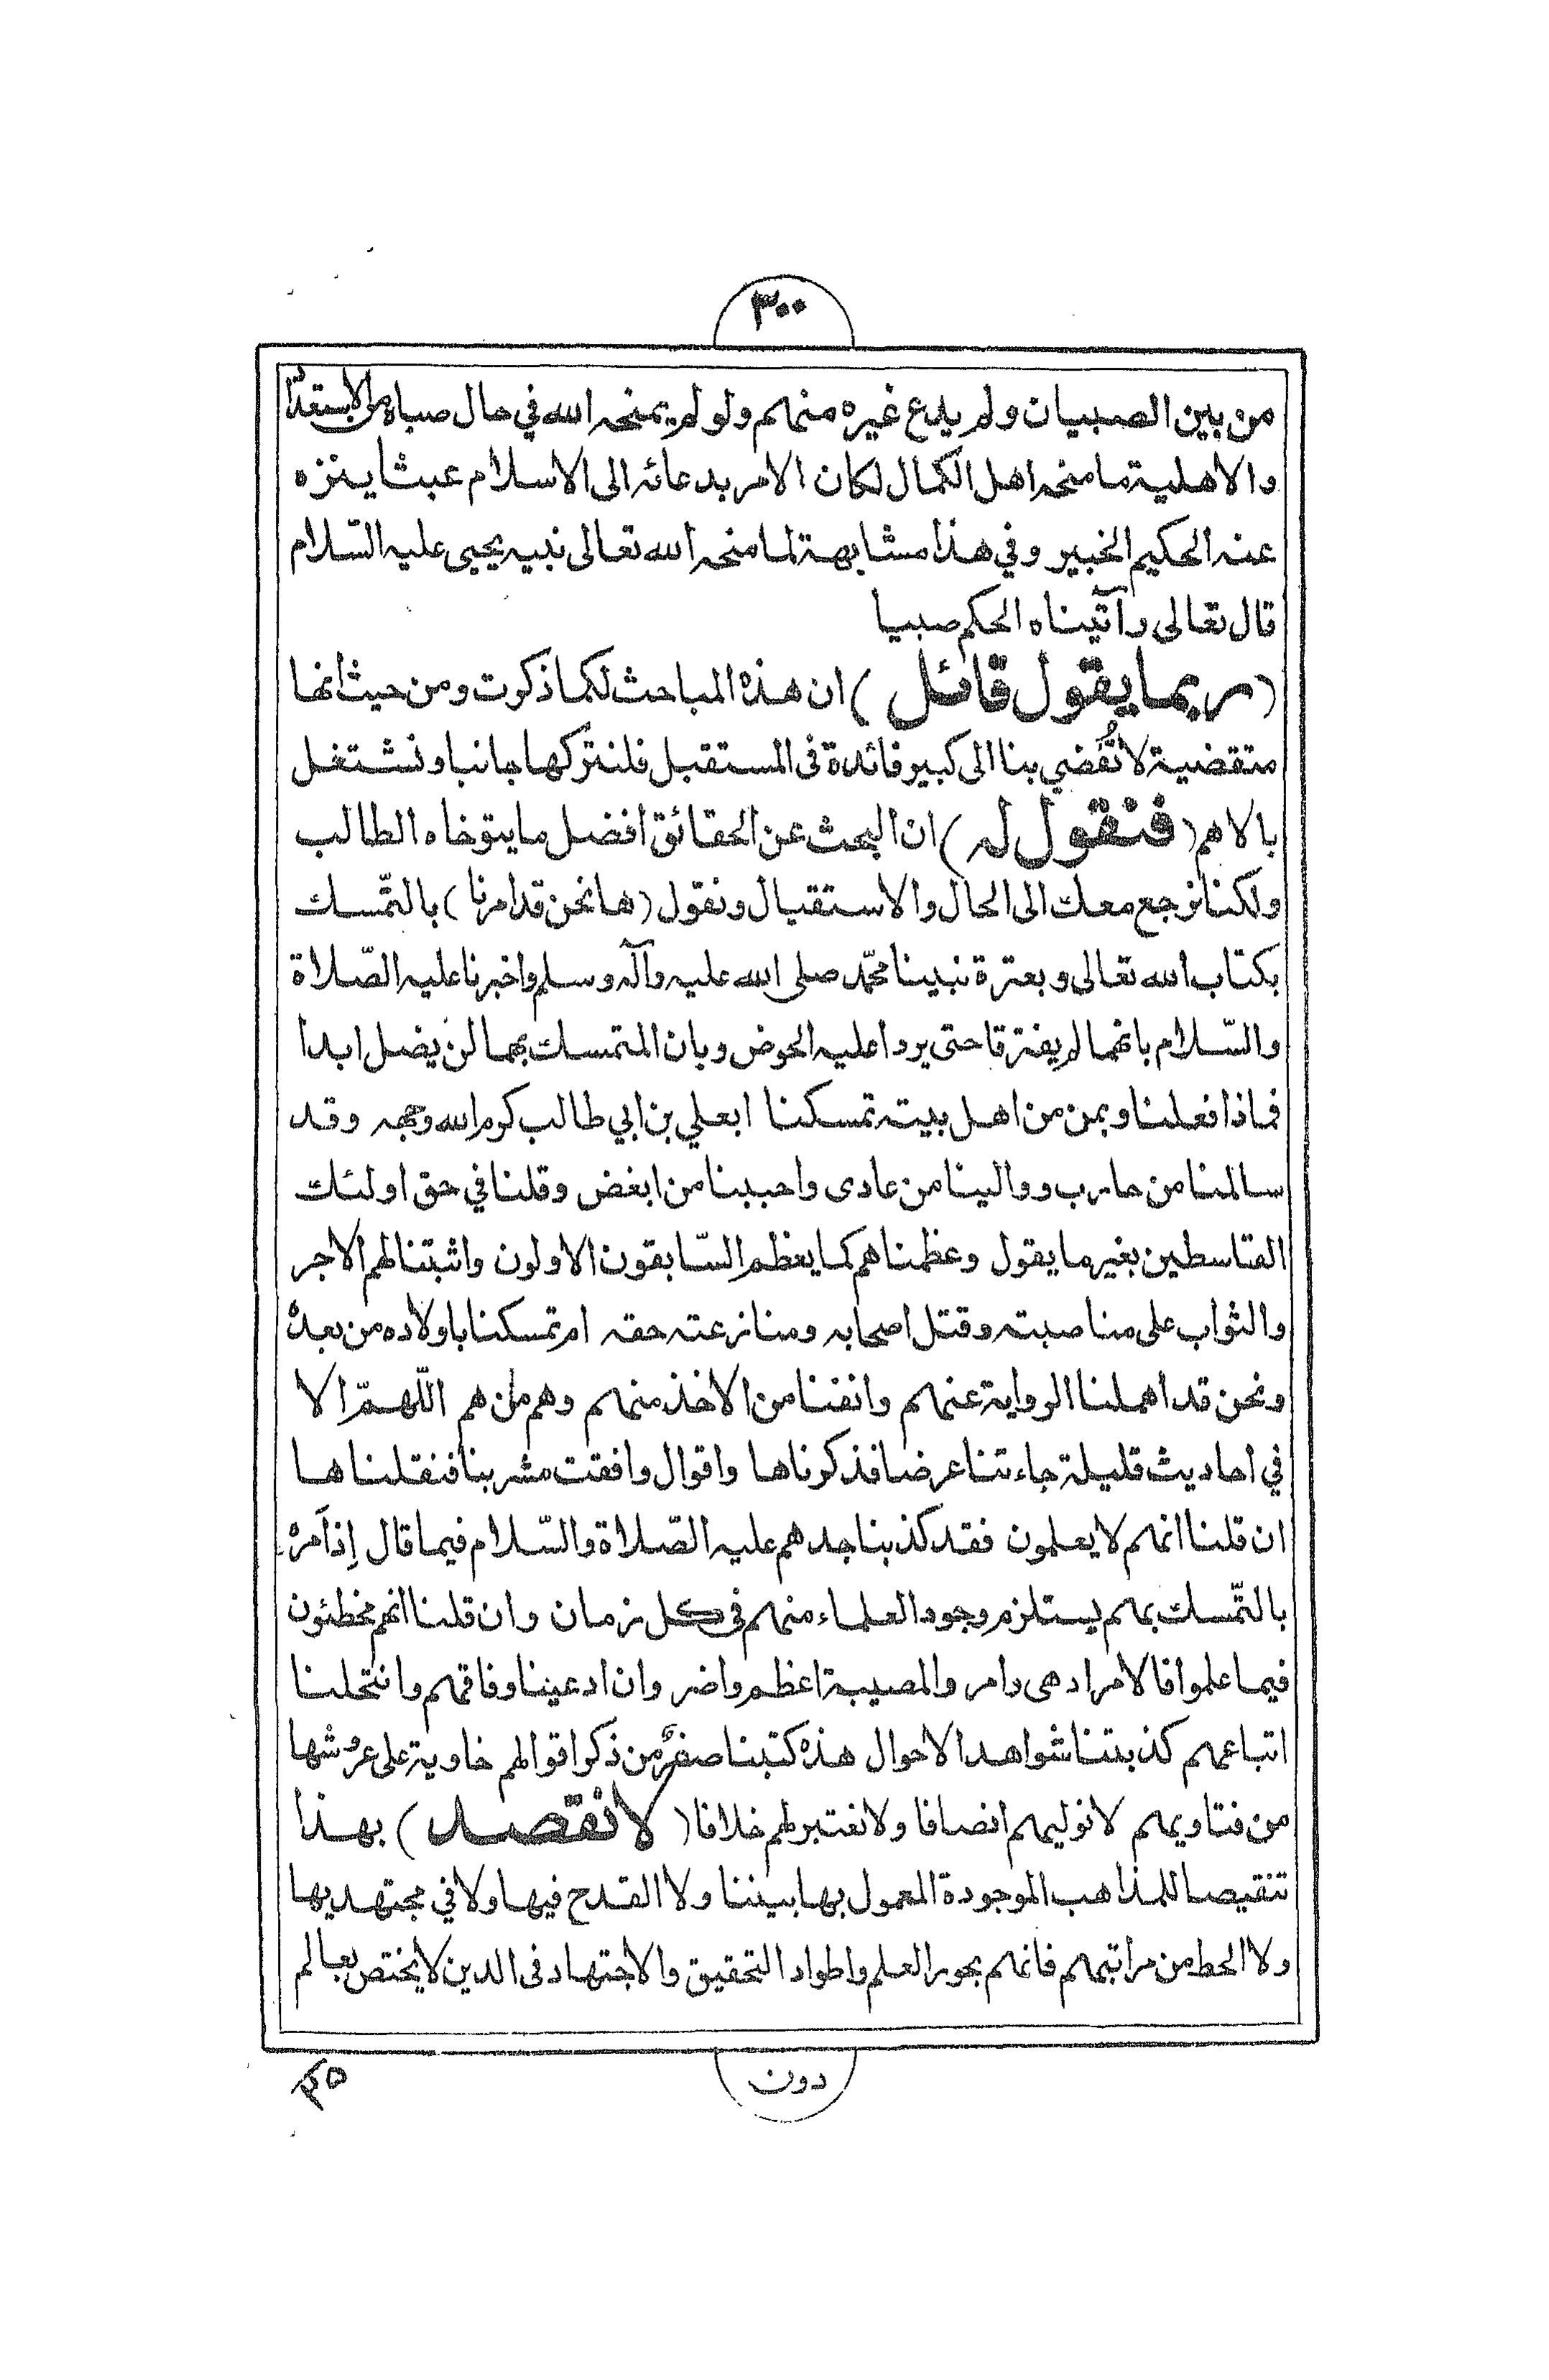 ٣٠٠
من بين الصبيان ولم يدع غيره منهم ولو لم يمنحه الله في حال صباه من الاستعداد
والاهلية ما منحه اهل الكمال لكان الامر بدعائه الى الاسلام عبثا ينزه
عنه الحكيم الخبير وفي هذا مشابهة لما منحه الله تعالى نبيه يحيى عليه السّلام
قال تعالى وآتيناه الحكم صبيا
(ربما يقول قائل) ان هذه المباحث لكما ذكرت ومن حيث انها
متقضية لا تُفضي بنا الى كبير فائدة فى المستقبل فلنتركها جانبا ونشتغل
بالاهم (فنقول له) ان البحث عن الحقائق افضل ما يتوخاه الطالب
ولكنا نرجع معك الى الحال والاستقبال ونقول (ها نحن قد امرنا) بالتّمسك
بكتاب الله تعالى وبعترة نبينا محمّد صلى الله عليه وآله وسلم واخبرنا عليه الصّلاة
والسّلام بانهما لم يفترقا حتى يردا عليه الحوض وبان المتمسك بهما لن يضل ابدا
فماذا فعلنا وبمن من اهل بيته تمسكنا ابعلي بن ابي طالب كرم الله وجهه وقد
سالمنا من حارب ووالينا من عادى واحببنا من ابغض وقلنا في حق اولئك
القاسطين بغير ما يقول وعظمناهم كما يعظم السّابقون الاولون واثبتنا لهم الاجر
والثواب على مناصبته وقتل اصحابه ومنازعته حقه ام تمسكنا باولاده من بعده
ونحن قد اهملنا الرواية عنهم وانفنا من الاخذ منهم وهم من هم اللّهمّ الا
في احاديث قليلة جاءتنا عرضا فذكرناها واقوال وافقت مشربنا فنقلناها
ان قلنا انهم لا يعلمون فقد كذبنا جدهم عليه الصّلاة والسّلام فيما قال إذ أمره
بالتّمسك بهم يستلزم وجود العلماء منهم فى كل زمان وان قلنا انهم مخطئون
فيما علموا فالامر ادهى وامر والمصيبة اعظم واضر وان ادعينا وفاقهم وانتحلنا
اتباعهم كذبتنا شواهد الاحوال هذه كتبنا صفرٌ من ذكر اقوالهم خاوية على عروشها
من فتاويهم لا نوليهم انصافا ولا نعتبر لهم خلافا (لا نقصد) بهذا
تنقيصا للمذاهب الموجودة المعمول بها بيننا ولا القدح فيها ولا في مجتهديها
ولا الحط من مراتبهم فانهم بحور العلم واطواد التحقيق والاجتهاد فى الدين لا يختص بعالم
دون